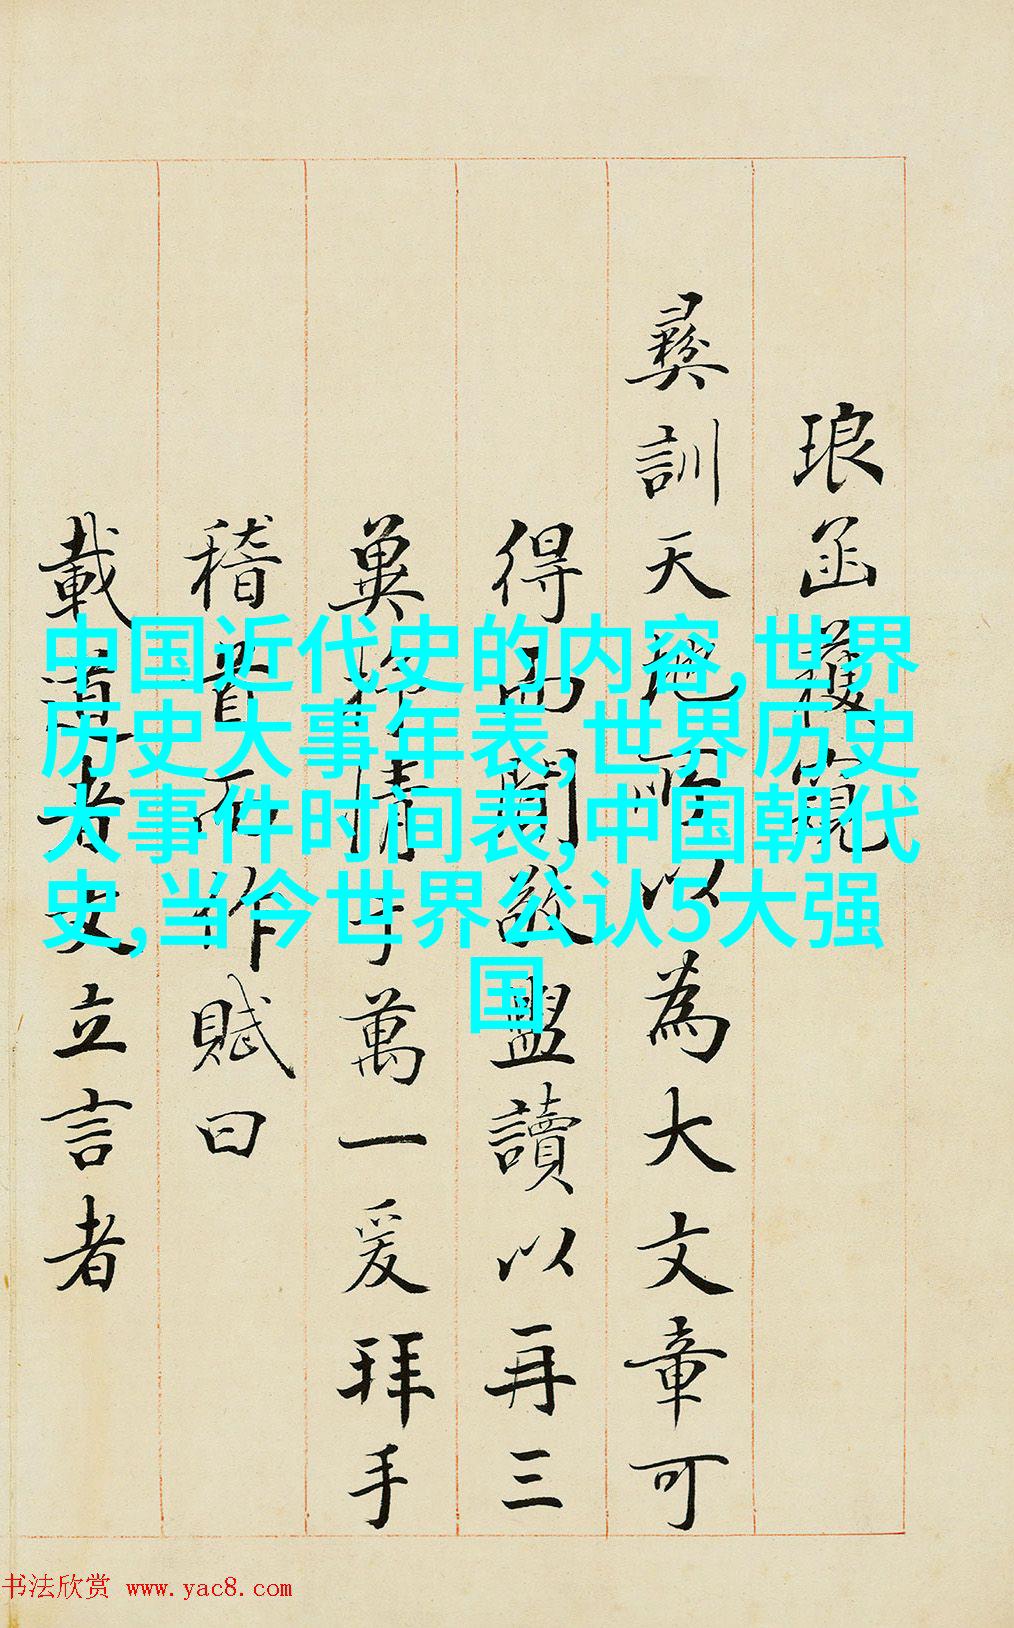 中国近代史的内容,世界
历史大事年表,世界历史
大事件时间表,中国朝代
史,当今世界公认5大强
国
琅函
彝訓天以為大文章可
得而聞敬盥讀以再三
冀抒情于萬一爰拜手
稽首而作賦曰
載道者文立言者
书法欣赏 www.yac8.com